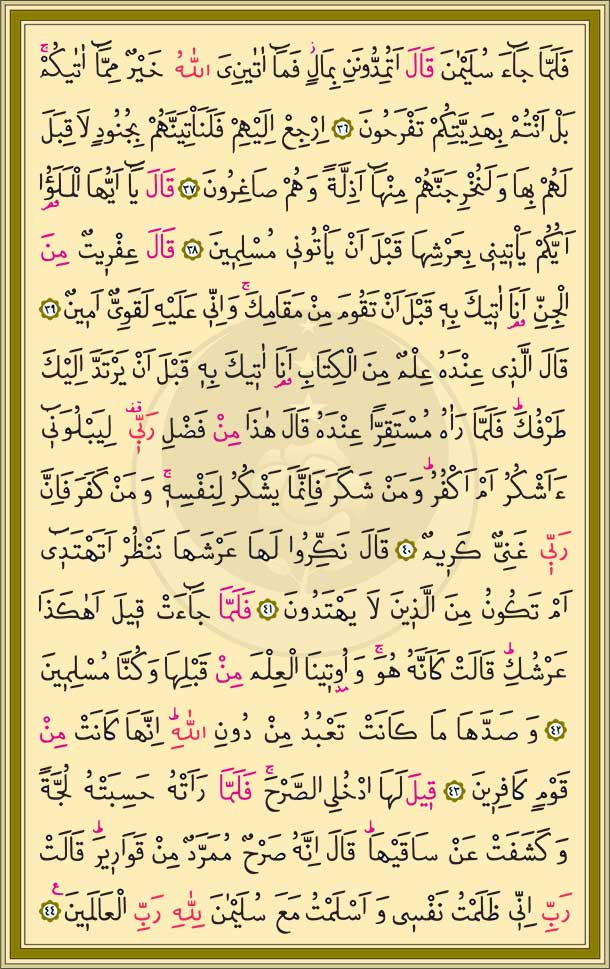 فَلَمَّا جَٓاءَ سُلَيْمٰنَ قَالَ اَتُمِدُّونَنِ بِمَالٍۘ فَمَٓا اٰتٰينِيَ اللّٰهُ خَيْرٌ مِمَّٓا اٰتٰيكُمْۚ
بَلْ اَنْتُمْ بِهَدِيَّتِكُمْ تَفْرَحُونَ ﴿٣٦﴾ اِرْجِعْ اِلَيْهِمْ فَلَنَأْتِيَنَّهُمْ بِجُنُودٍ لَا قِبَلَ
لَهُمْ بِهَا وَلَنُخْرِجَنَّهُمْ مِنْهَٓا اَذِلَّةً وَهُمْ صَاغِرُونَ ﴿٣٧﴾ قَالَ يَٓا اَيُّهَا الْمَلَؤُ۬ا
اَيُّكُمْ يَأْتٖينٖي بِعَرْشِهَا قَبْلَ اَنْ يَأْتُونٖي مُسْلِمٖينَ ﴿٣٨﴾ قَالَ عِفْرٖيتٌ مِنَ
الْجِنِّ اَنَا۬ اٰتٖيكَ بِهٖ قَبْلَ اَنْ تَقُومَ مِنْ مَقَامِكَۚ وَاِنّٖي عَلَيْهِ لَقَوِيٌّ اَمٖينٌ ﴿٣٩﴾
قَالَ الَّذٖي عِنْدَهُ عِلْمٌ مِنَ الْكِتَابِ اَنَا۬ اٰتٖيكَ بِهٖ قَبْلَ اَنْ يَرْتَدَّ اِلَيْكَ
طَرْفُكَۜ فَلَمَّا رَاٰهُ مُسْتَقِرًّا عِنْدَهُ قَالَ هٰذَا مِنْ فَضْلِ رَبّٖي لِيَبْلُوَنٖٓي
ءَاَشْكُرُ اَمْ اَكْفُرُۜ وَمَنْ شَكَرَ فَاِنَّمَا يَشْكُرُ لِنَفْسِهٖۚ وَمَنْ كَفَرَ فَاِنَّ
رَبّٖي غَنِيٌّ كَرٖيمٌ ﴿٤٠﴾ قَالَ نَكِّرُوا لَهَا عَرْشَهَا نَنْظُرْ اَتَهْتَدٖٓي
اَمْ تَكُونُ مِنَ الَّذٖينَ لَا يَهْتَدُونَ ﴿٤١﴾ فَلَمَّا جَٓاءَتْ قٖيلَ اَهٰكَذَا
عَرْشُكِۜ قَالَتْ كَاَنَّهُ هُوَۚ وَاُو۫تٖينَا الْعِلْمَ مِنْ قَبْلِهَا وَكُنَّا مُسْلِمٖينَ
﴿٤٢﴾ وَصَدَّهَا مَا كَانَتْ تَعْبُدُ مِنْ دُونِ اللّٰهِۜ اِنَّهَا كَانَتْ مِنْ
قَوْمٍ كَافِرٖينَ ﴿٤٣﴾ قٖيلَ لَهَا ادْخُلِي الصَّرْحَۚ فَلَمَّا رَاَتْهُ حَسِبَتْهُ لُجَّةً
وَكَشَفَتْ عَنْ سَاقَيْهَاۜ قَالَ اِنَّهُ صَرْحٌ مُمَرَّدٌ مِنْ قَوَارٖيرَۜ قَالَتْ
رَبِّ اِنّٖي ظَلَمْتُ نَفْسٖي وَاَسْلَمْتُ مَعَ سُلَيْمٰنَ لِلّٰهِ رَبِّ الْعَالَمٖينَ ﴿٤٤﴾